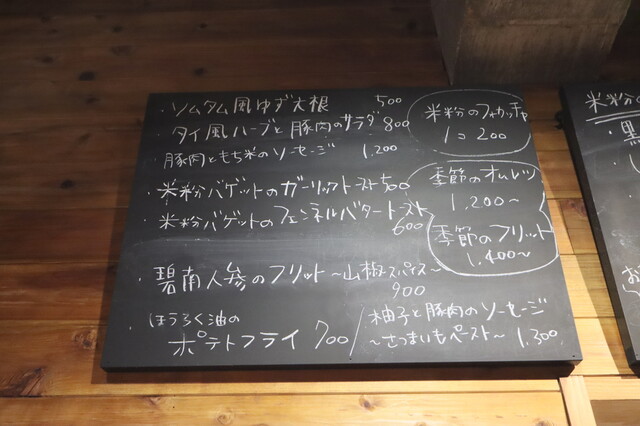 ・ソムタム風ゆず大根 500
・タイ風ハーブと豚肉のサラダ 800
豚肉ともち米のソーセージ 1,200
・米粉バゲットのガーリックトースト 500
・米粉バゲットのフェンネルバタートースト
600
・碧南人参のフリット〜山椒スパイス〜
900
・ほうろく油の
ポテトフライ 700
柚子と豚肉のソーセージ
〜さつまいもペースト〜 1,300
米粉のフォカッチャ
1コ 200
季節のオムレツ
1,200〜
季節のフリット
1,400〜
米粉の
・黒